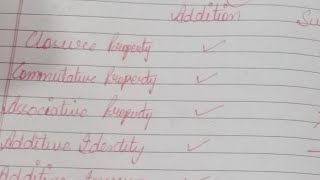 Addition Su
Closure Property ✓
Commutative Property ✓
Associative Property ✓
Additive Identity ✓
Additive